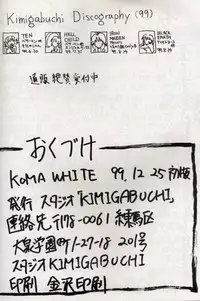 Kimigabuchi Discography (99)
TEN
HELL CHILD
IRON MAIDEN
BLACK EARTH
通販絶賛受付中
おくづけ
KOMA WHITE 99.12.25 初版
発行 スタジオ「KIMIGABUCHI」
連絡先 〒178-0061 練馬区
大泉学園町1-27-18 201号
スタジオKIMIGABUCHI
印刷 金沢印刷